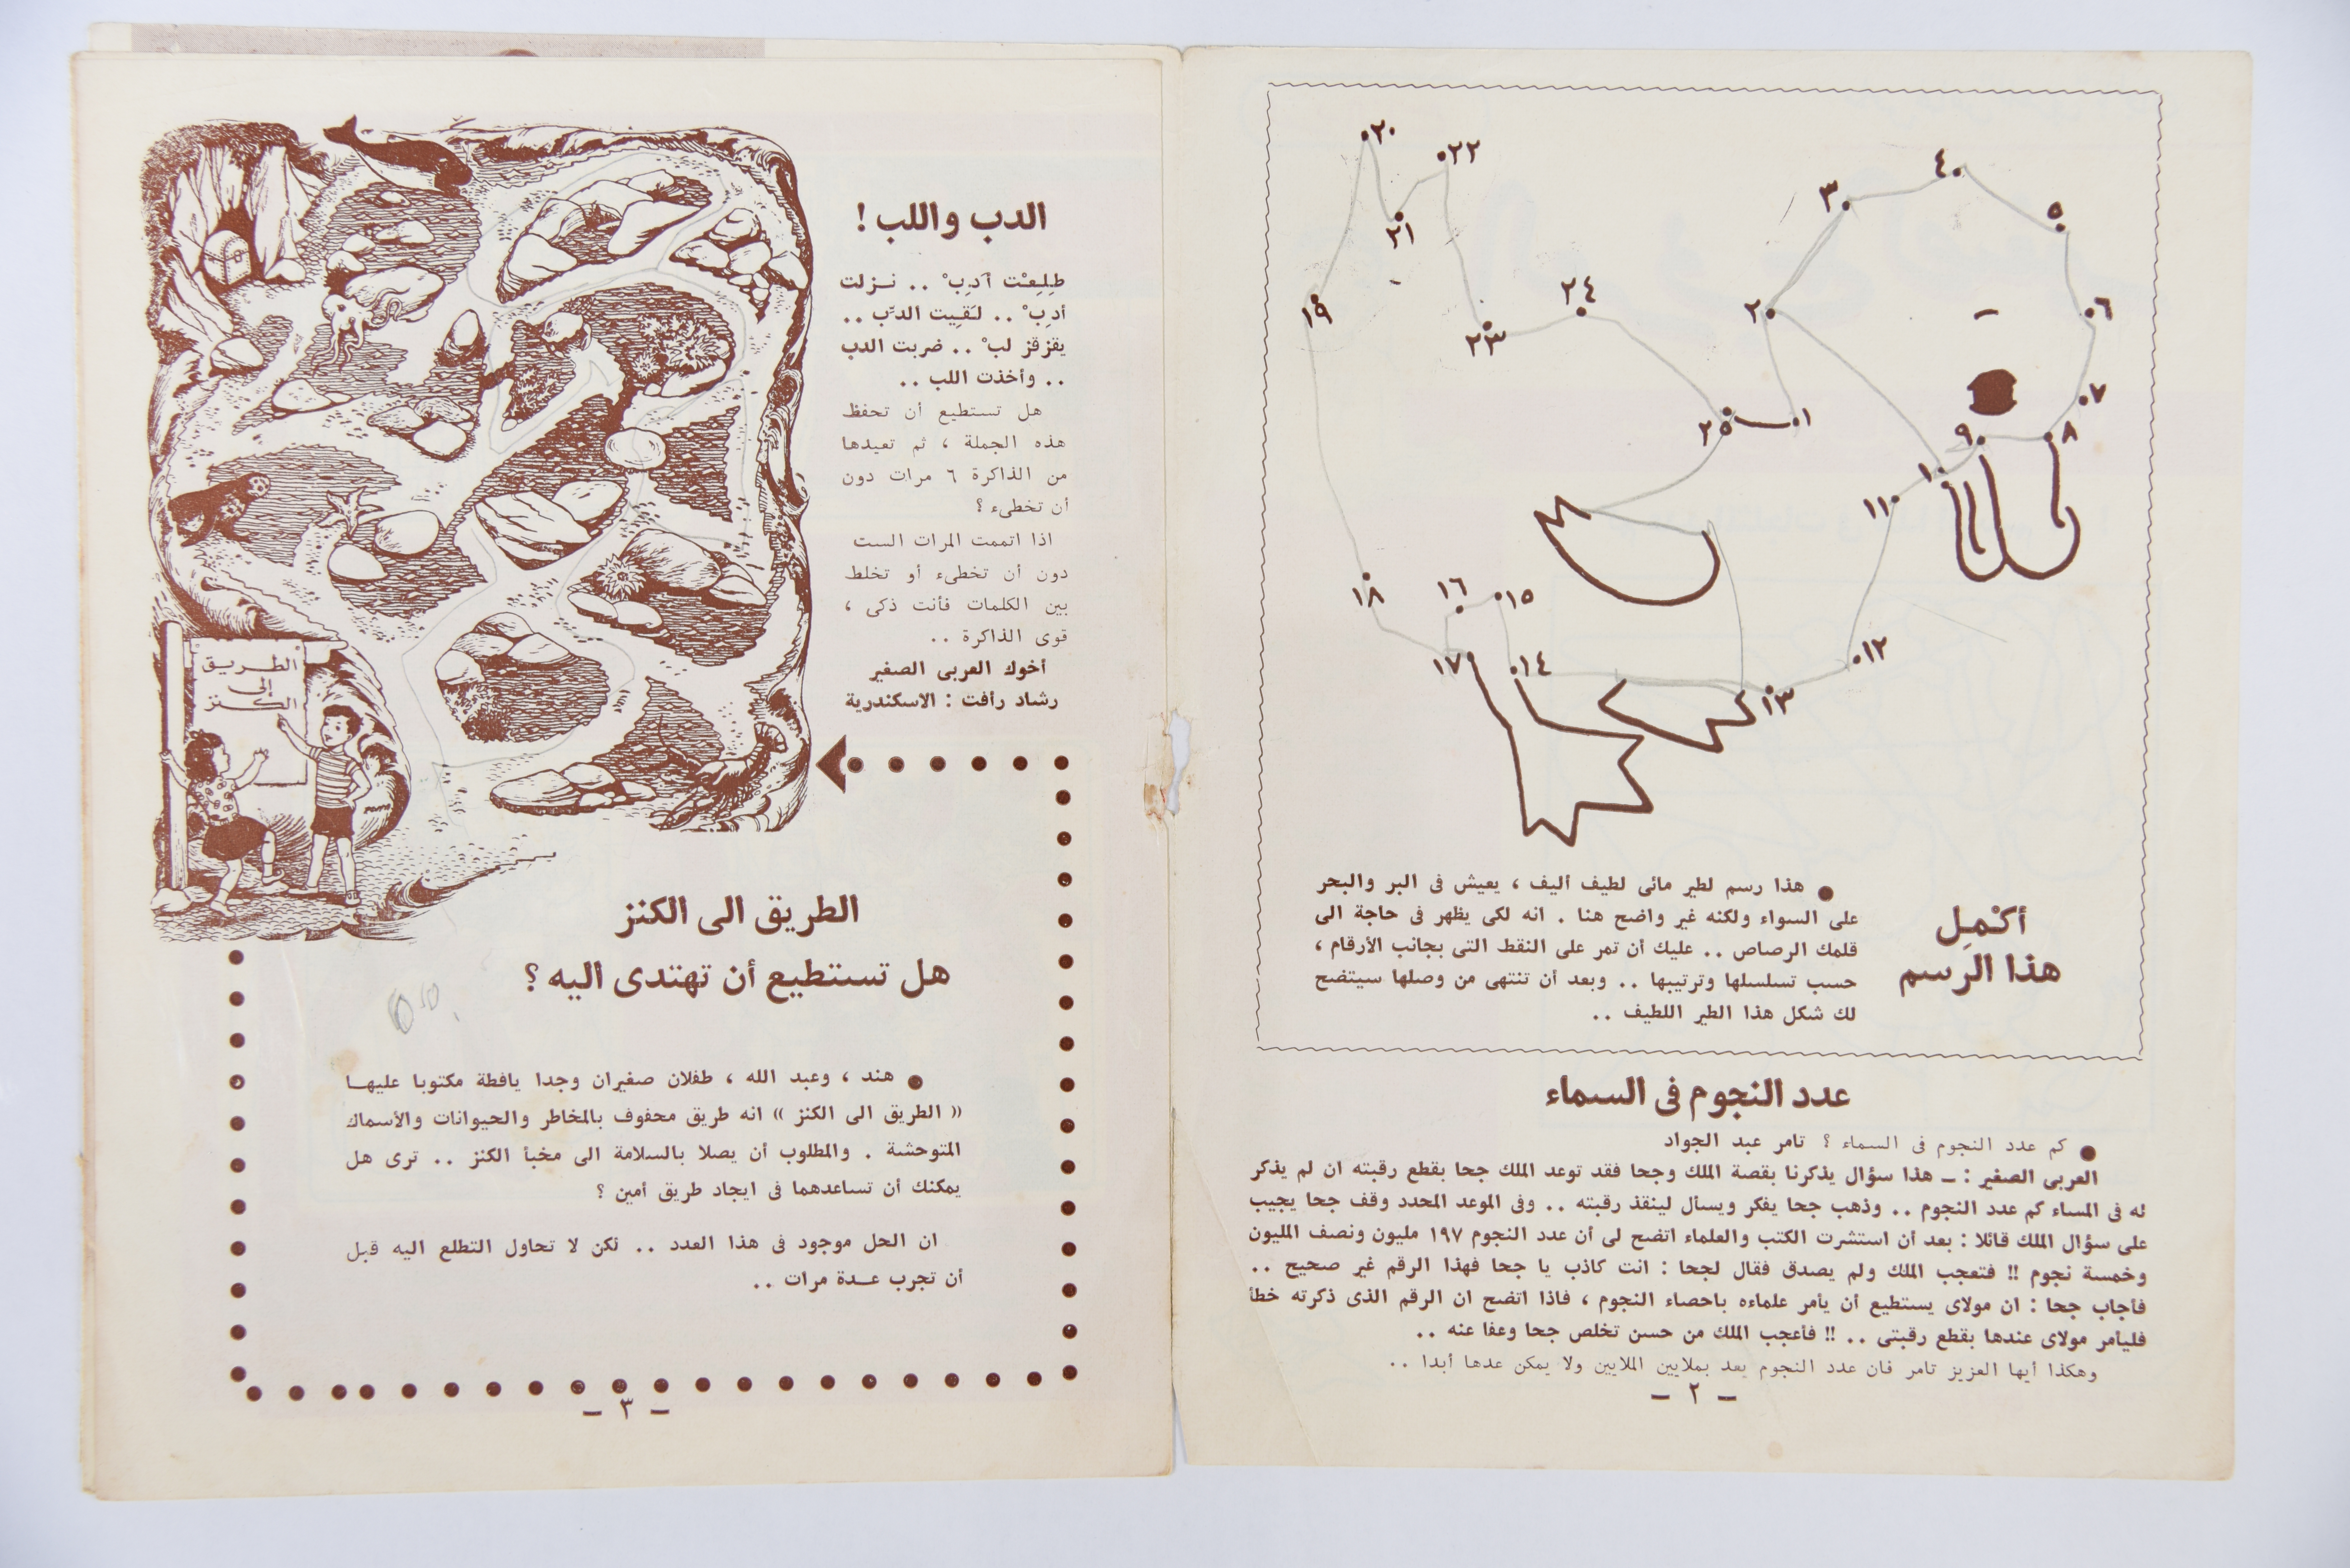 ٢٠
٢٢
٤
٣
٥
٢١
١٩
٢٤
٢
٦
٢٣
٧
٢٥
١
٩
٨
١٠
١١
١٨
١٦
١٥
١٧
١٤
١٢
١٣
أكْمِل
هذا الرسم
● هذا رسم لطير مائى لطيف أليف ، يعيش فى البر والبحر
على السواء ولكنه غير واضح هنا . انه لكى يظهر فى حاجة الى
قلمك الرصاص .. عليك أن تمر على النقط التى بجانب الأرقام ،
حسب تسلسلها وترتيبها .. وبعد أن تنتهى من وصلها سيتضح
لك شكل هذا الطير اللطيف ..
عدد النجوم فى السماء
● كم عدد النجوم فى السماء ؟ تامر عبد الجواد
العربى الصغير : ــ هذا سؤال يذكرنا بقصة الملك وجحا فقد توعد الملك جحا بقطع رقبته ان لم يذكر
له فى المساء كم عدد النجوم .. وذهب جحا يفكر ويسأل لينقذ رقبته .. وفى الموعد المحدد وقف جحا يجيب
على سؤال الملك قائلا : بعد أن استشرت الكتب والعلماء اتضح لى أن عدد النجوم ١٩٧ مليون ونصف المليون
وخمسة نجوم !! فتعجب الملك ولم يصدق فقال لجحا : انت كاذب يا جحا فهذا الرقم غير صحيح ..
فأجاب جحا : ان مولاى يستطيع أن يأمر علماءه باحصاء النجوم ، فاذا اتضح ان الرقم الذى ذكرته خطأ
فليأمر مولاى عندها بقطع رقبتى .. !! فأعجب الملك من حسن تخلص جحا وعفا عنه ..
وهكذا أيها العزيز تامر فان عدد النجوم يعد بملايين الملايين ولا يمكن عدها أبدا ..
– ٢ –
الدب واللب !
طِلِعْت أدِبْ .. نـزلت
أدِبْ .. لَقِيت الدِّب ..
يقزقز لبْ .. ضربت الدب
.. وأخذت اللب ..
هل تستطيع أن تحفظ
هذه الجملة ، ثم تعيدها
من الذاكرة ٦ مرات دون
أن تخطىء ؟
اذا اتممت المرات الست
دون أن تخطىء أو تخلط
بين الكلمات فأنت ذكى ،
قوى الذاكرة ..
أخوك العربى الصغير
رشاد رأفت : الاسكندرية
الطريق
إلى
الكنز
الطريق الى الكنز
هل تستطيع أن تهتدى اليه ؟
● هند ، وعبد الله ، طفلان صغيران وجدا يافطة مكتوبا عليهـا
« الطريق الى الكنز » انه طريق محفوف بالمخاطر والحيوانات والأسماك
المتوحشة . والمطلوب أن يصلا بالسلامة الى مخبأ الكنز .. ترى هل
يمكنك أن تساعدهما فى ايجاد طريق أمين ؟
ان الحل موجود فى هذا العدد .. لكن لا تحاول التطلع اليه قبل
أن تجرب عـدة مرات ..
– ٣ –